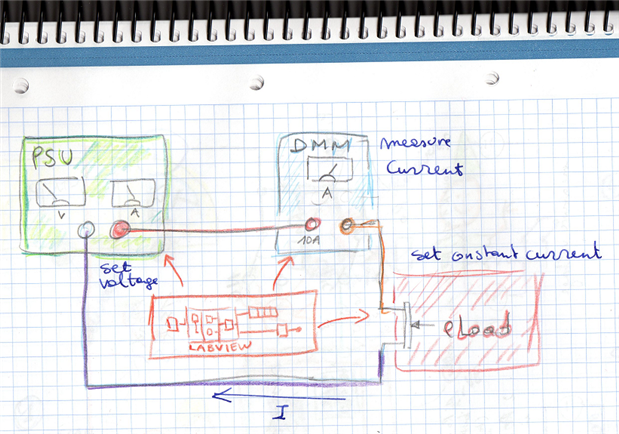 PSU
V
A
DMM
A
10A
measure
Current
set
voltage
set constant current
LABVIEW
eLoad
I